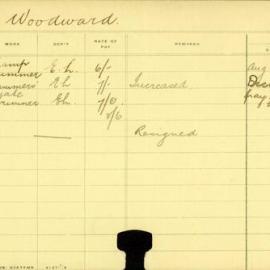 Woodward.
WORK DEP'T RATE OF PAY REMARKS
Lamp Aug
Trimmer E.L. 6/-
Trimmers E L 7/- Increased Dec
Trimmer EL. 7/0.
8/6
Resigned